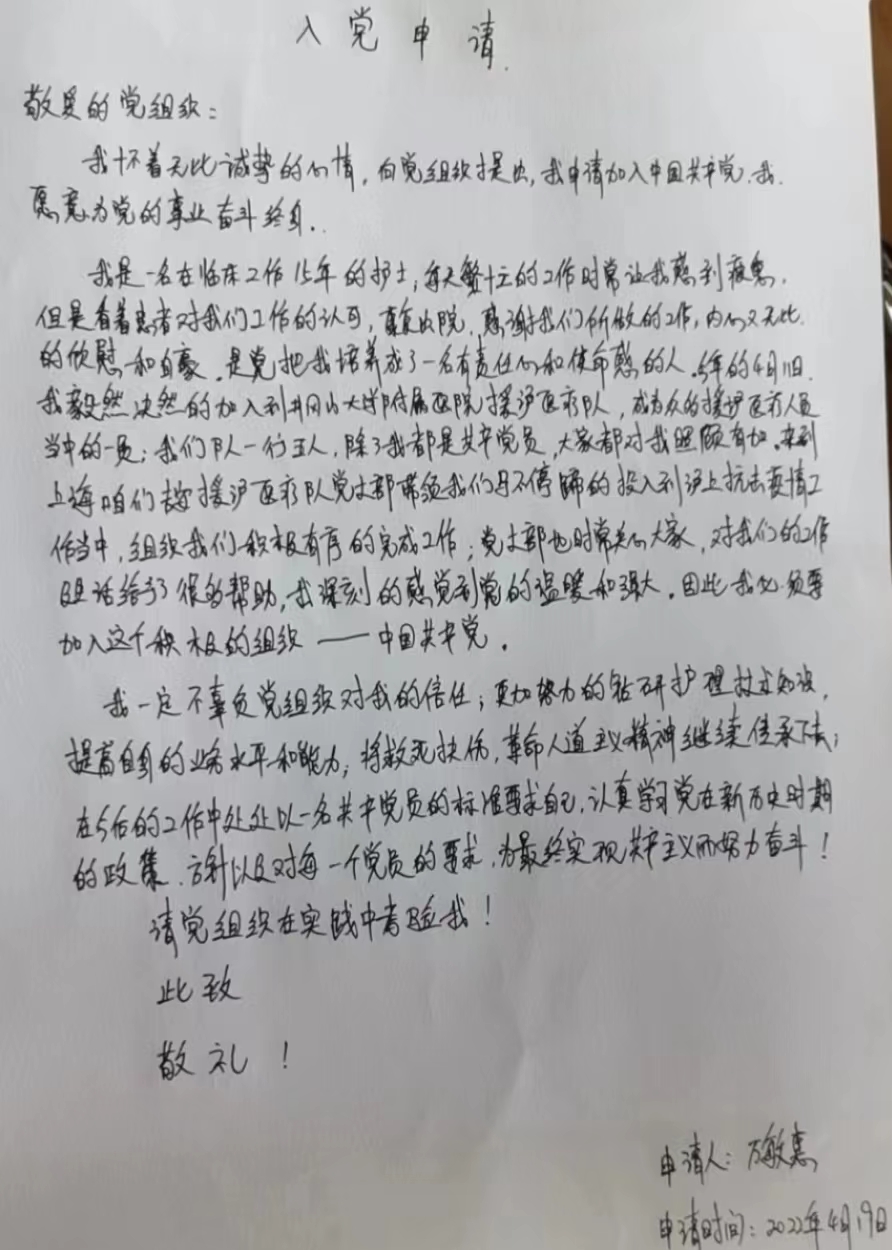 入党申请
敬爱的党组织：
我怀着无比诚挚的心情，向党组织提出，我申请加入中国共产党．我
愿意为党的事业奋斗终身．
我是一名在临床工作15年的护士，每天繁忙的工作时常让我感到疲惫，
但是看着患者对我们工作的认可，康复出院，感谢我们所做的工作，内心又无比
的欣慰和自豪．是党把我培养成了一名有责任心和使命感的人．今年的4月1日
我毅然决然的加入到井冈山大学附属医院援沪医疗队，成为众的援沪医疗人员
当中的一员；我们队一行五人，除了我都是共产党员，大家都对我照顾有加．来到
上海咱们吉安援沪医疗队党支部带领我们马不停蹄的投入到沪上抗击疫情工
作当中，组织我们积极有序的完成工作；党支部也时常关心大家，对我们的工作
生活给予了很多帮助，我深刻的感觉到党的温暖和强大．因此我必须要
加入这个积极的组织——中国共产党．
我一定不辜负党组织对我的信任；更加努力的钻研护理技术知识，
提高自身的业务水平和能力；将救死扶伤，革命人道主义精神继续传承下去；
在今后的工作中处处以一名共产党员的标准要求自己，认真学习党在新历史时期
的政策、方针以及对每一个党员的要求，为最终实现共产主义而努力奋斗！
请党组织在实践中考验我！
此致
敬礼！
申请人：万敏惠
申请时间：2022年4月19日